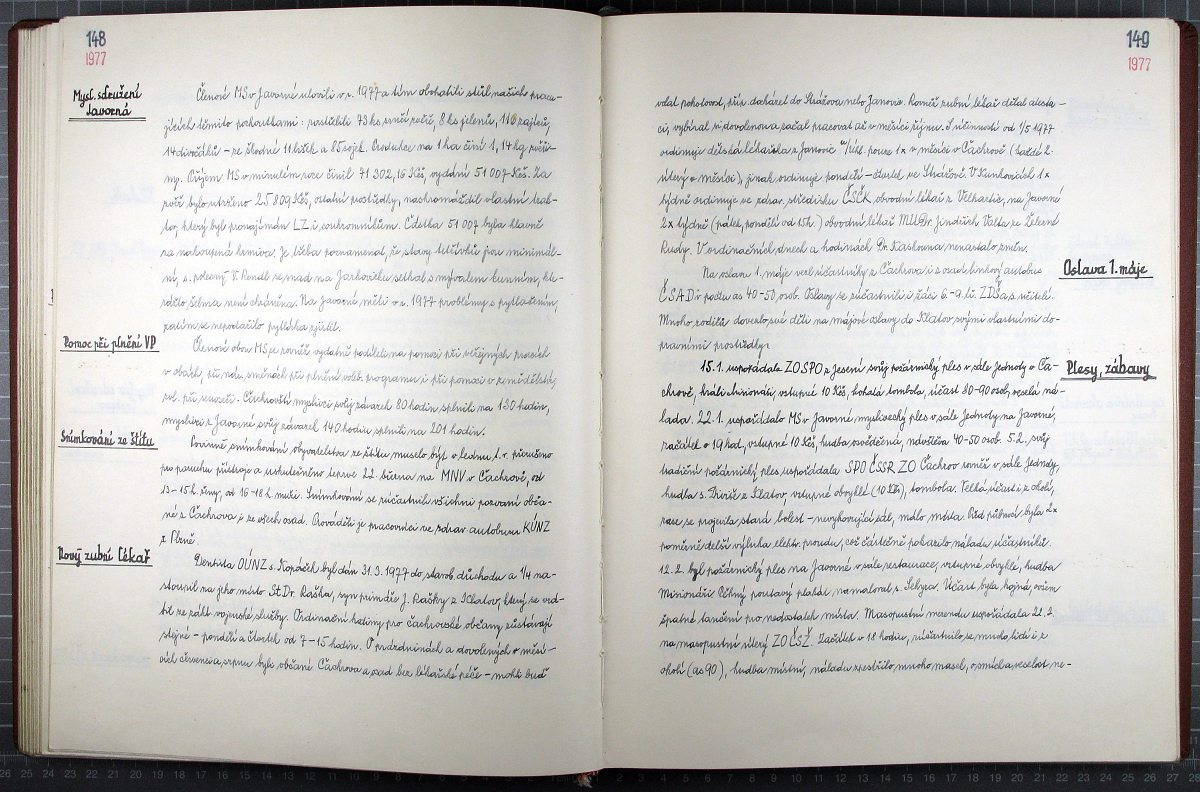 148
1977
Mysl. sdružení
Javorná
Členové MS v Javorné ulovili v r. 1977 a tím obohatili stůl našich pracu-
jících těmito pochoutkami: 73 ks srnčí zvěře, 8 ks jelenů, 116 zajíců,
14 divočáků – ze škodné 11 lišek a 85 sojek. Produkce na 1 ha činí 1,14 kg zvěři-
ny. Příjem MS v minulém roce činil 71 302,16 Kčs, vydání 51 007 Kčs. Za
zvěř bylo utrženo 25 809 Kčs, ostatní prostředky, nashromáždil vlastní trak-
tor, který byl pronajímán LZ i soukromníkům. Částka 51 007 byla hlavně
za nakoupená krmiva. Je třeba poznamenat, že stavy tetřívků jsou minimál-
ní, s. polesný V. Rendl se snad na Jarkovsku setkal s výrem, kte-
rážto šelma není chráněna. Na Javorné měli v r. 1977 problémy s pytlačením,
zatím se nepodařilo pytláka zjistit.
Pomoc při plnění VP
Členové obou MS se rovněž vydatně podíleli na pomoci při veřejných pracích
v obcích, při plnění voleb. programu i při pomoci v zemědělství,
zvl. při senoseči. Čachrovští myslivci svůj závazek 80 hodin splnili na 130 hodin,
myslivci z Javorné svůj závazek 140 hodin splnili na 201 hodin.
Snímkování ze štítu
Povinné snímkování obyvatelstva ze štítu muselo být v lednu t. r. přerušeno
pro poruchu přístroje a uskutečněno teprve 22. března na MNV v Čachrově, od
13–15 h. ženy, od 16–18 h. muži. Snímkování se zúčastnili všichni pozvaní obča-
né z Čachrova i ze všech osad. Prováděli je pracovníci ve zdrav. autobusu KÚNZ
z Plzně.
Nový zubní lékař
Dentista OÚNZ s. Kopáček byl dán 31.3.1977 do starob. důchodu a 1/4 na-
stoupil na jeho místo St Dr. Raška, syn primáře J. Rašky z Klatov, který se vrá-
til ze zákl. vojenské služby. Ordinační hodiny pro čachrovské občany zůstávají
stejné – pondělí a čtvrtek od 7–15 hodin. O prázdninách a dovolených v měsí-
cích červenci a srpnu byli občané Čachrova a osad bez lékařské péče – mohli buď
149
1977
volat pohotovost, příp. docházet do Strážova nebo Janovic. Rovněž zubní lékař dělal atesta-
ci, vybíral si dovolenou a začal pracovat až v měsíci říjnu. S účinností od 1/5 1977
ordinuje dětská lékařka z Janovic pouze 1x v měsíci v Čachrově (každé 2.
úterý v měsíci), jinak ordinuje pondělí – čtvrtek ve Strážově. V Kunkovicích 1x
týdně ordinuje ve zdrav. středisku ČSČK obvodní lékař z Velhartic, na Javorné
2x týdně (pátek, pondělí od 15 h.) obvodní lékař MUDr. Jindřich Valta ze Železné
Rudy. V ordinačních dnech a hodinách Dr. nenastalo změn.
Oslava 1. máje
Na oslavu 1. máje vezl účastníky z Čachrova i z osad linkový autobus
ČSAD v počtu as 40–50 osob. Oslavy se zúčastnili i žáci 6.–9. tř. ZDŠ a s. učitelé.
Mnoho rodičů dovezlo své děti na májové oslavy do Klatov svými vlastními do-
pravními prostředky.
Plesy, zábavy
15. 1. uspořádala ZO SPO z Jesení svůj požárnický ples v sále Jednoty v Ča-
chrově, hráli Misionáři, vstupné 10 Kčs, bohatá tombola, účast 80–90 osob, veselá ná-
lada. 22.1. uspořádalo MS v Javorné myslivecký ples v sále Jednoty na Javorné,
začátek v 19 hod., vstupné 10 Kčs, hudba, návštěva 40–50 osob. 5.2. svůj
tradiční požárnický ples uspořádala SPO ČSSR ZO Čachrov rovněž v sále Jednoty,
hudba s. Diviše z Klatov, vstupné obvyklé (10 Kčs), tombola. Velká účast i z okolí,
zase se projevila stará bolest – nevyhovující sál, málo místa. Před půlnocí byla 2x
poměrně delší výluka elektr. proudu, což částečně pokazilo náladu účastníků.
12.2. byl požárnický ples na Javorné v sále restaurace, vstupné obvyklé, hudba
Misionáři. Pěkný poutavý plakát namaloval s. Účast byla hojná, ovšem
špatné tančení pro nedostatek místa. Masopustní merendu uspořádala 22.2.
na masopustní úterý ZO ČSŽ. Začátek v 18 hodin, zúčastnilo se mnoho lidí i z
okolí (as 90), hudba místní, náladu zpestřilo mnoho masek, o smích a veselost ne-